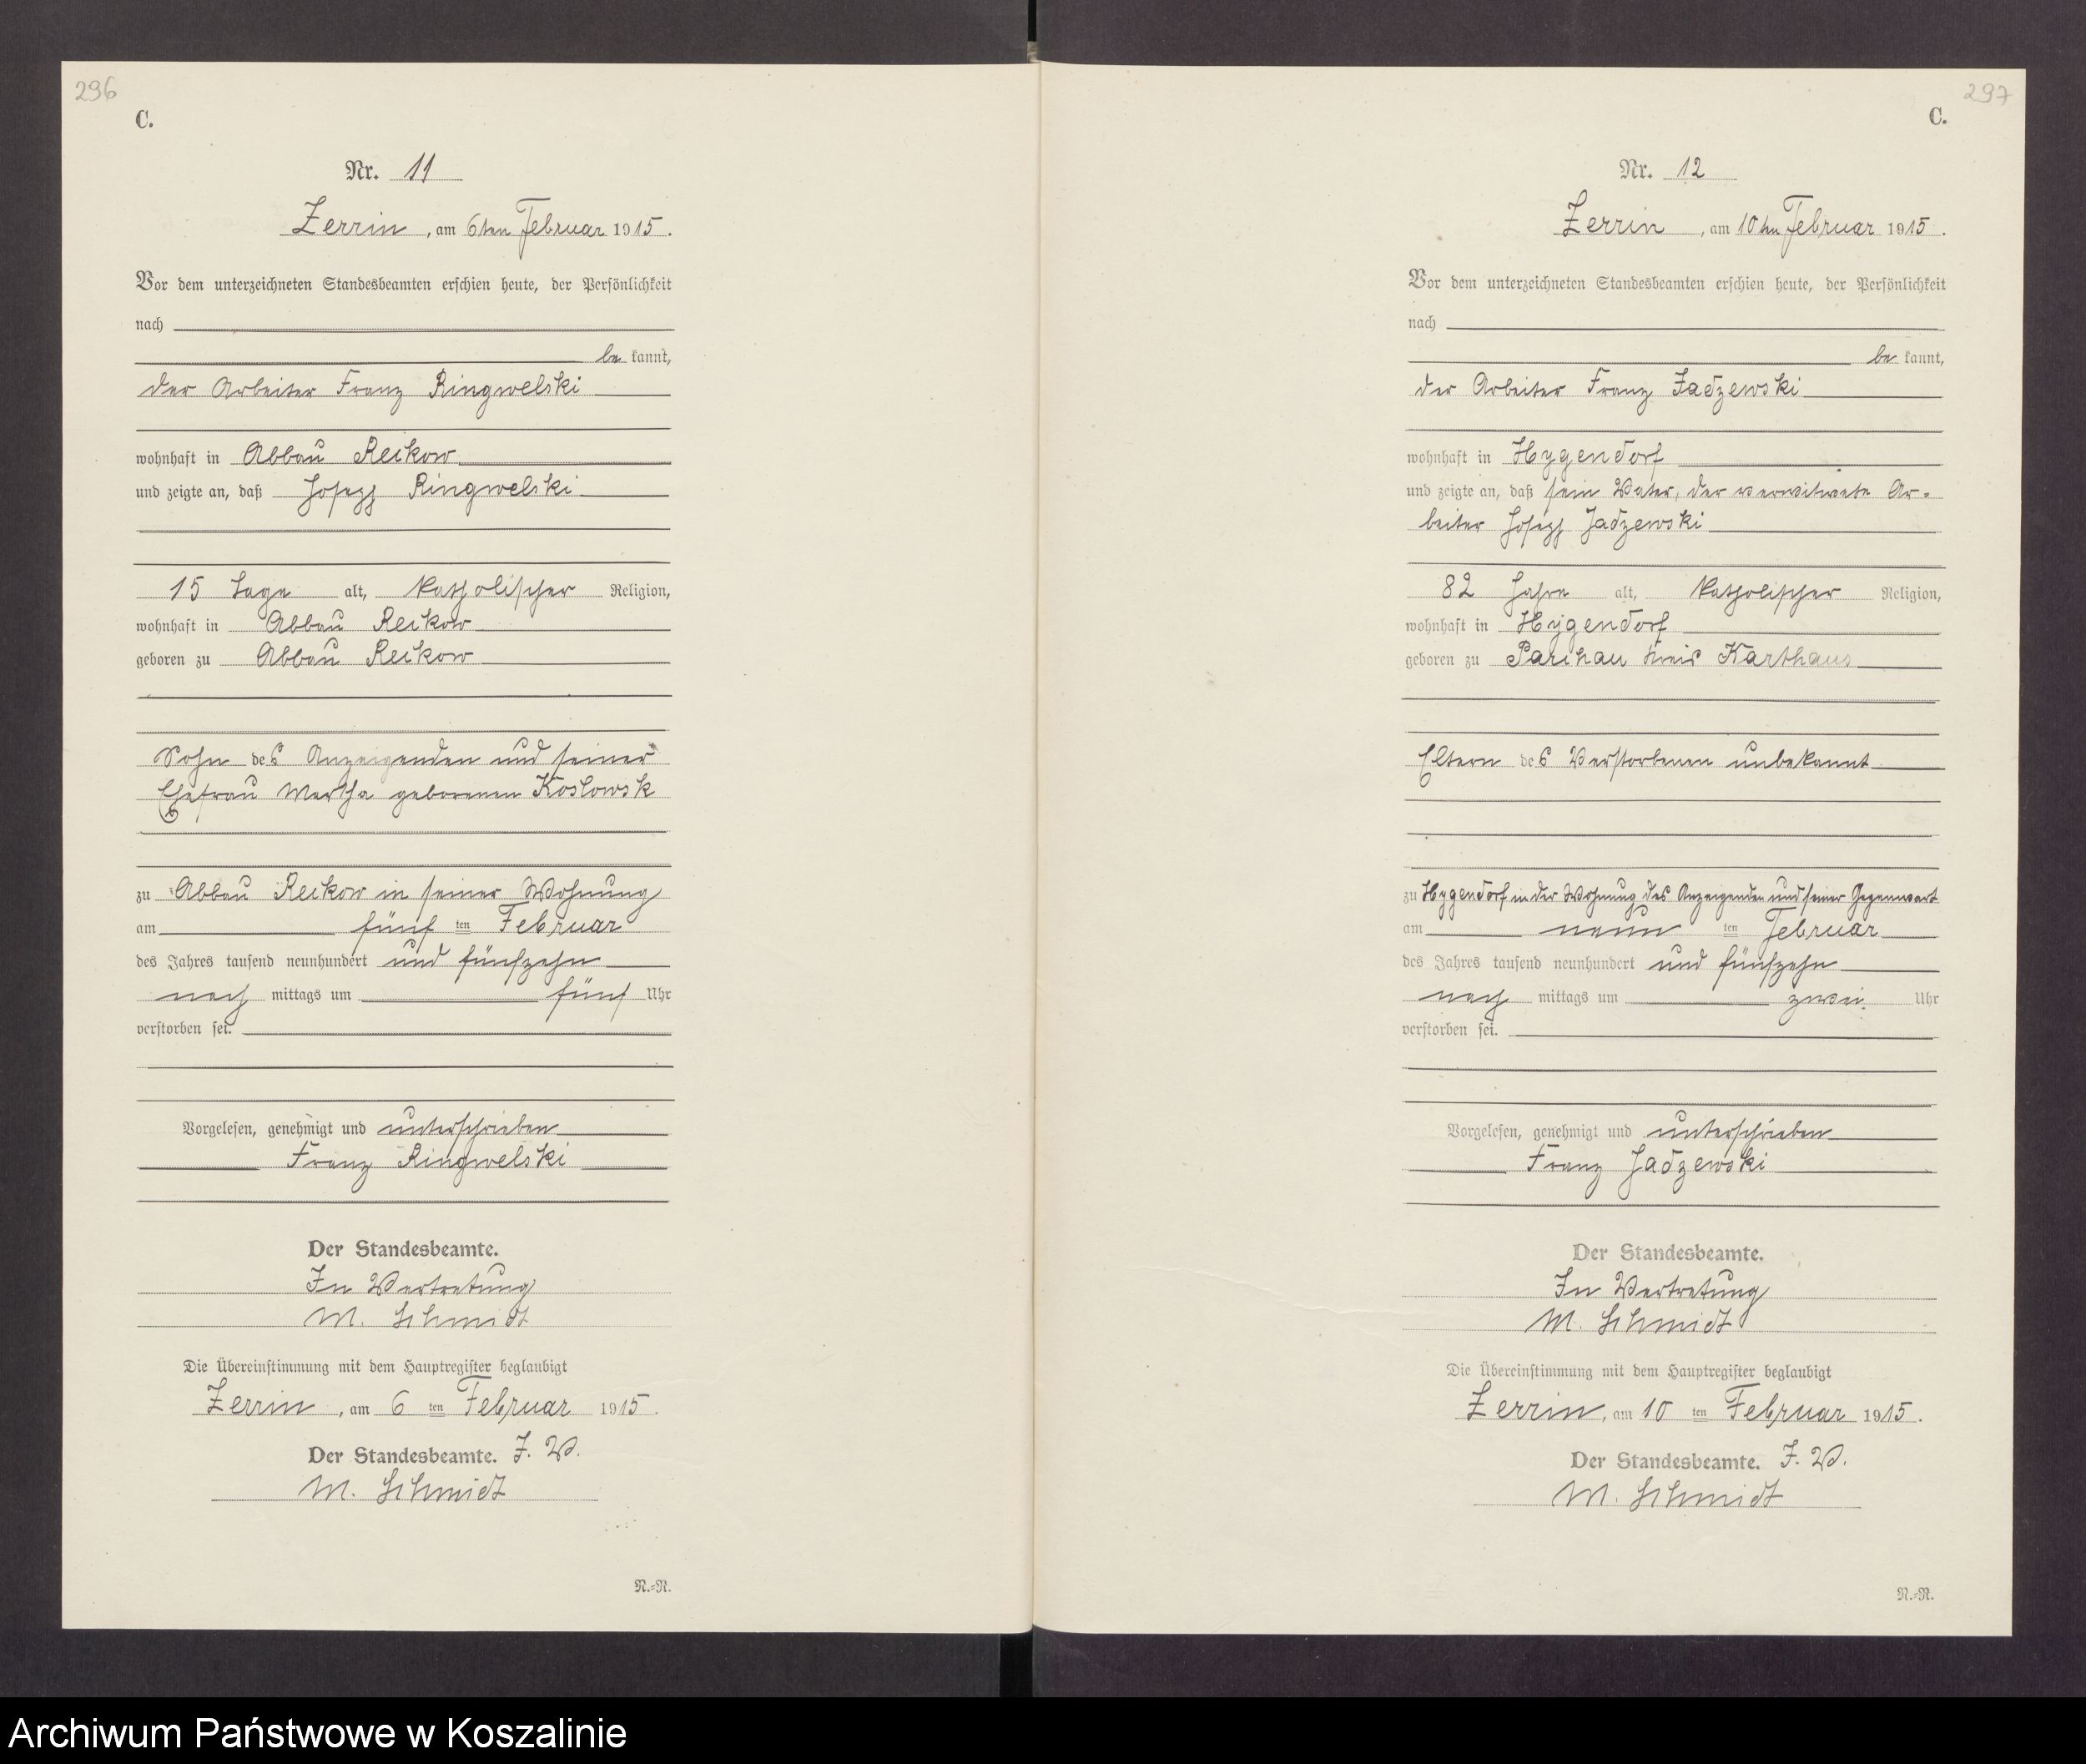 296
C.
Nr. 11
Zerrin, am 6ten Februar 1915.
Vor dem unterzeichneten Standesbeamten erschien heute, der Persönlichkeit
nach
be kannt,
der Arbeiter Franz Ringwelski
wohnhaft in Abbau Reikow
und zeigte an, daß Joseph Ringwelski
15 Tage alt, katholischer Religion,
wohnhaft in Abbau Reikow
geboren zu Abbau Reikow
Sohn des Anzeigenden und seiner
Ehefrau Martha geborenen Koslowsk
zu Abbau Reikow in seiner Wohnung
am fünf ten Februar
des Jahres tausend neunhundert und fünfzehn
nach mittags um fünf Uhr
verstorben sei.
Vorgelesen, genehmigt und unterschrieben
Franz Ringwelski
Der Standesbeamte.
In Vertretung
M. Schmidt
Die Übereinstimmung mit dem Hauptregister beglaubigt
Zerrin, am 6 ten Februar 1915.
Der Standesbeamte. J. V.
M. Schmidt
N.-R.
297
C.
Nr. 12
Zerrin, am 10ten Februar 1915.
Vor dem unterzeichneten Standesbeamten erschien heute, der Persönlichkeit
nach
be kannt,
der Arbeiter Franz Jadzewski
wohnhaft in Hygendorf
und zeigte an, daß sein Vater, der verwitwete Ar-
beiter Joseph Jadzewski
82 Jahre alt, katholischer Religion,
wohnhaft in Hygendorf
geboren zu Parchau Kreis Karthaus
Eltern des Verstorbenen unbekannt
zu Hygendorf in der Wohnung des Anzeigenden und seiner Gegenwart
am neun ten Februar
des Jahres tausend neunhundert und fünfzehn
nach mittags um zwei Uhr
verstorben sei.
Vorgelesen, genehmigt und unterschrieben
Franz Jadzewski
Der Standesbeamte.
In Vertretung
M. Schmidt
Die Übereinstimmung mit dem Hauptregister beglaubigt
Zerrin, am 10 ten Februar 1915.
Der Standesbeamte. J. V.
M. Schmidt
N.-R.
Archiwum Państwowe w Koszalinie